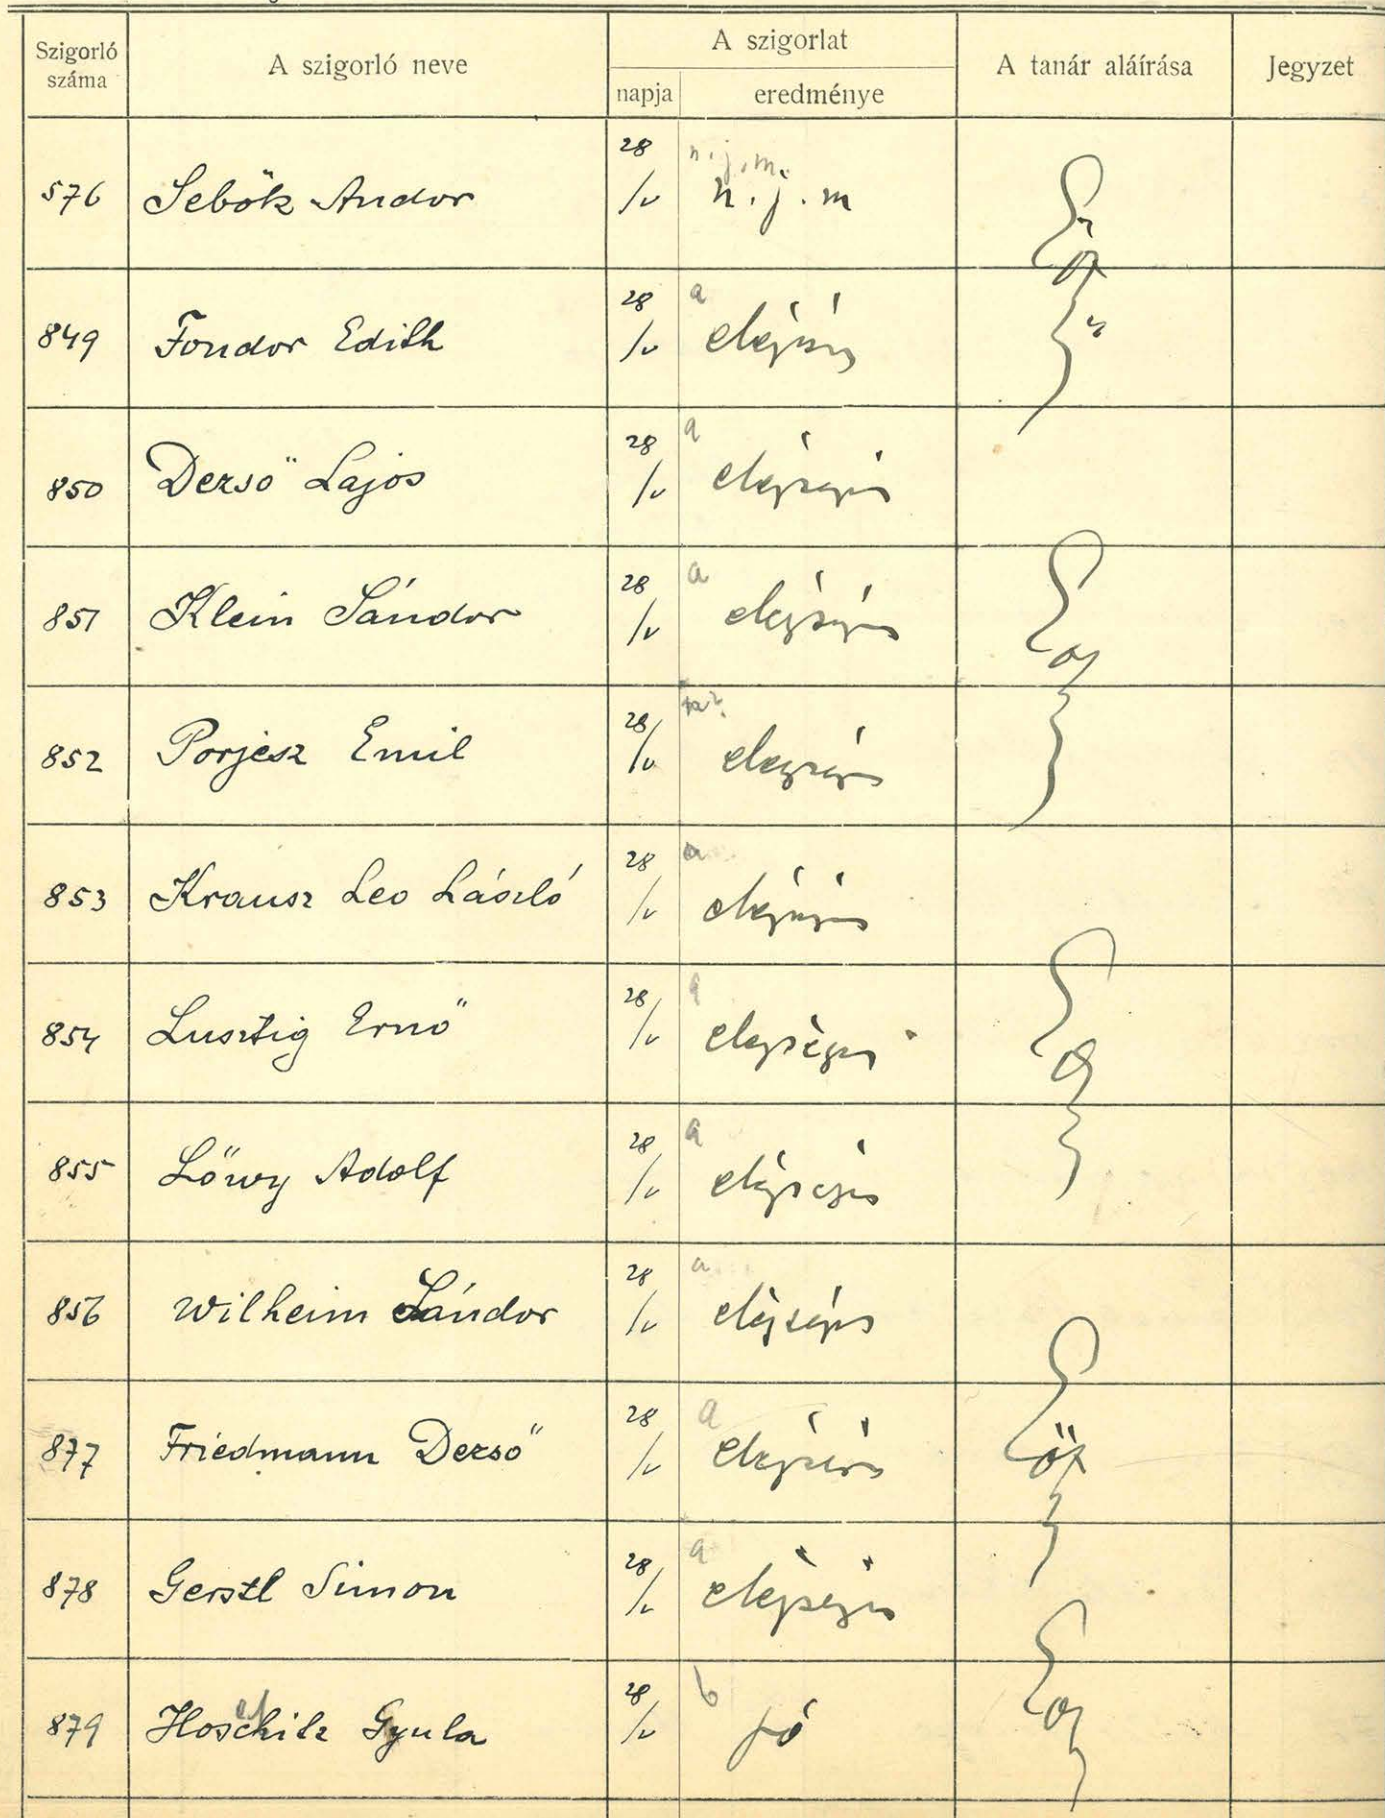 Szigorló száma | A szigorló neve | A szigorlat | A tanár aláírása | Jegyzet
napja | eredménye
n. j. m.
576 | Sebők Andor | 28/V | n. j. m
a
849 | Fondor Edith | 28/V | elégséges
a
850 | Dezső Lajos | 28/V | elégséges
a
851 | Klein Sándor | 28/V | elégséges
852 | Porjesz Emil | 28/V | elegséges
a
853 | Krausz Leo László | 28/V | elégséges
a
854 | Lusztig Ernő | 28/V | elegséges
a
855 | Lőwy Adolf | 28/V | elégséges
a
856 | Wilheim Sándor | 28/V | elégséges
a
877 | Friedmann Dezső | 28/V | elégséges
a
878 | Gerstl Simon | 28/V | elégséges
b
879 | Hoschitz Gyula | 28/V | jó